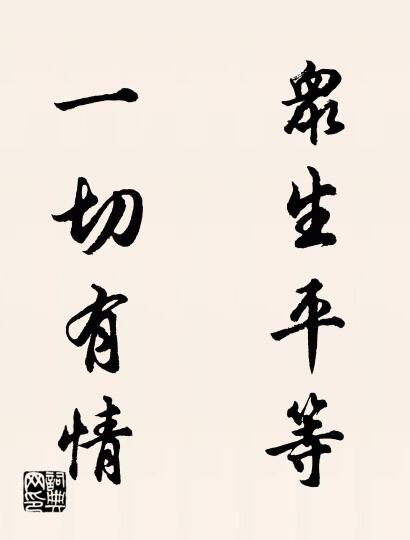 眾生平等
一切有情
詞典网印